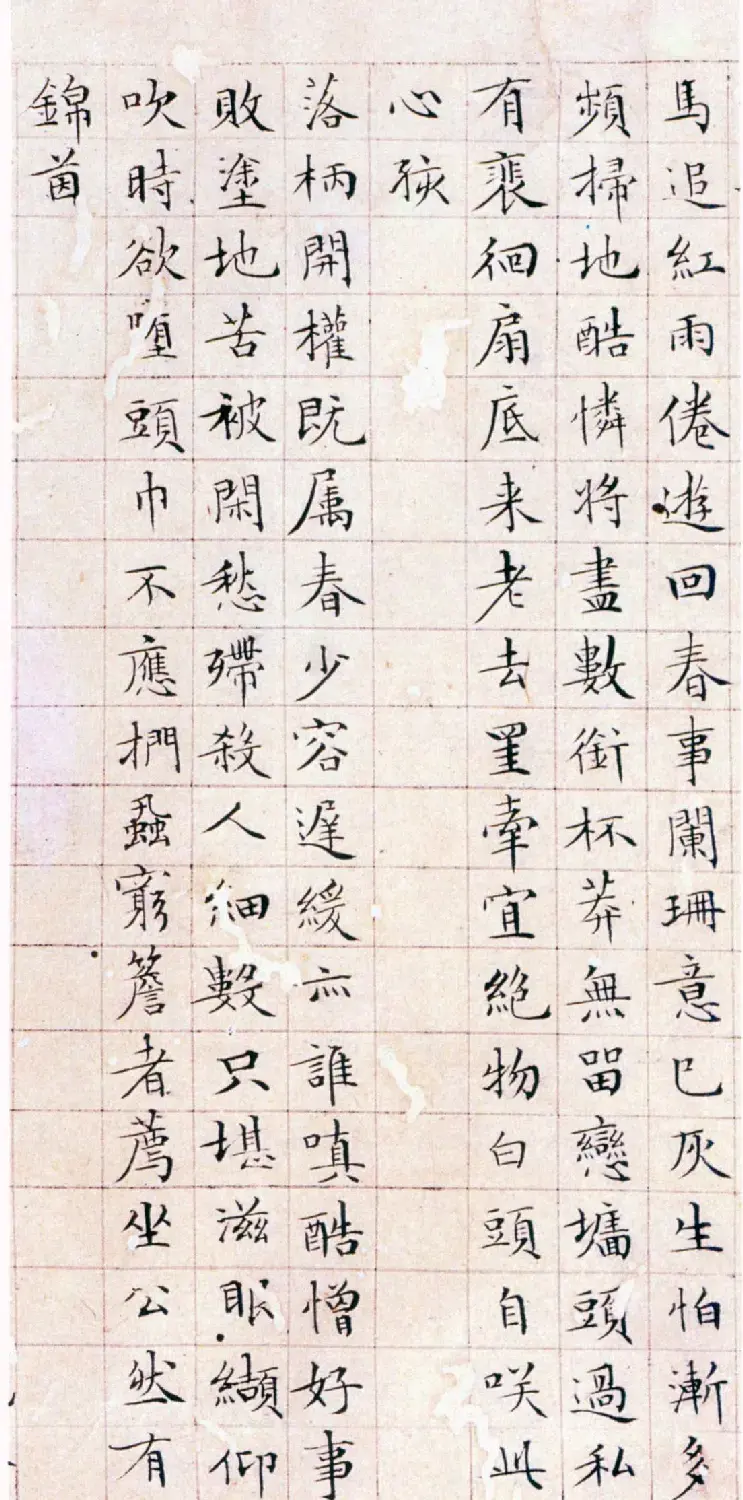 馬追紅雨倦遊回春事闌珊意已灰生怕漸多
頻掃地酷憐將盡數銜杯莽無留戀墻頭過私
有裵徊扇底来老去罣牽宜絶物白頭自咲此
心孩
落柄開權既属春少容遲緩亦誰嗔酷憎好事
敗塗地苦被閑愁殢殺人細數只堪滋眼纈仰
吹時欲頭巾不應捫蝨窮簷者薦坐公然有
錦茵